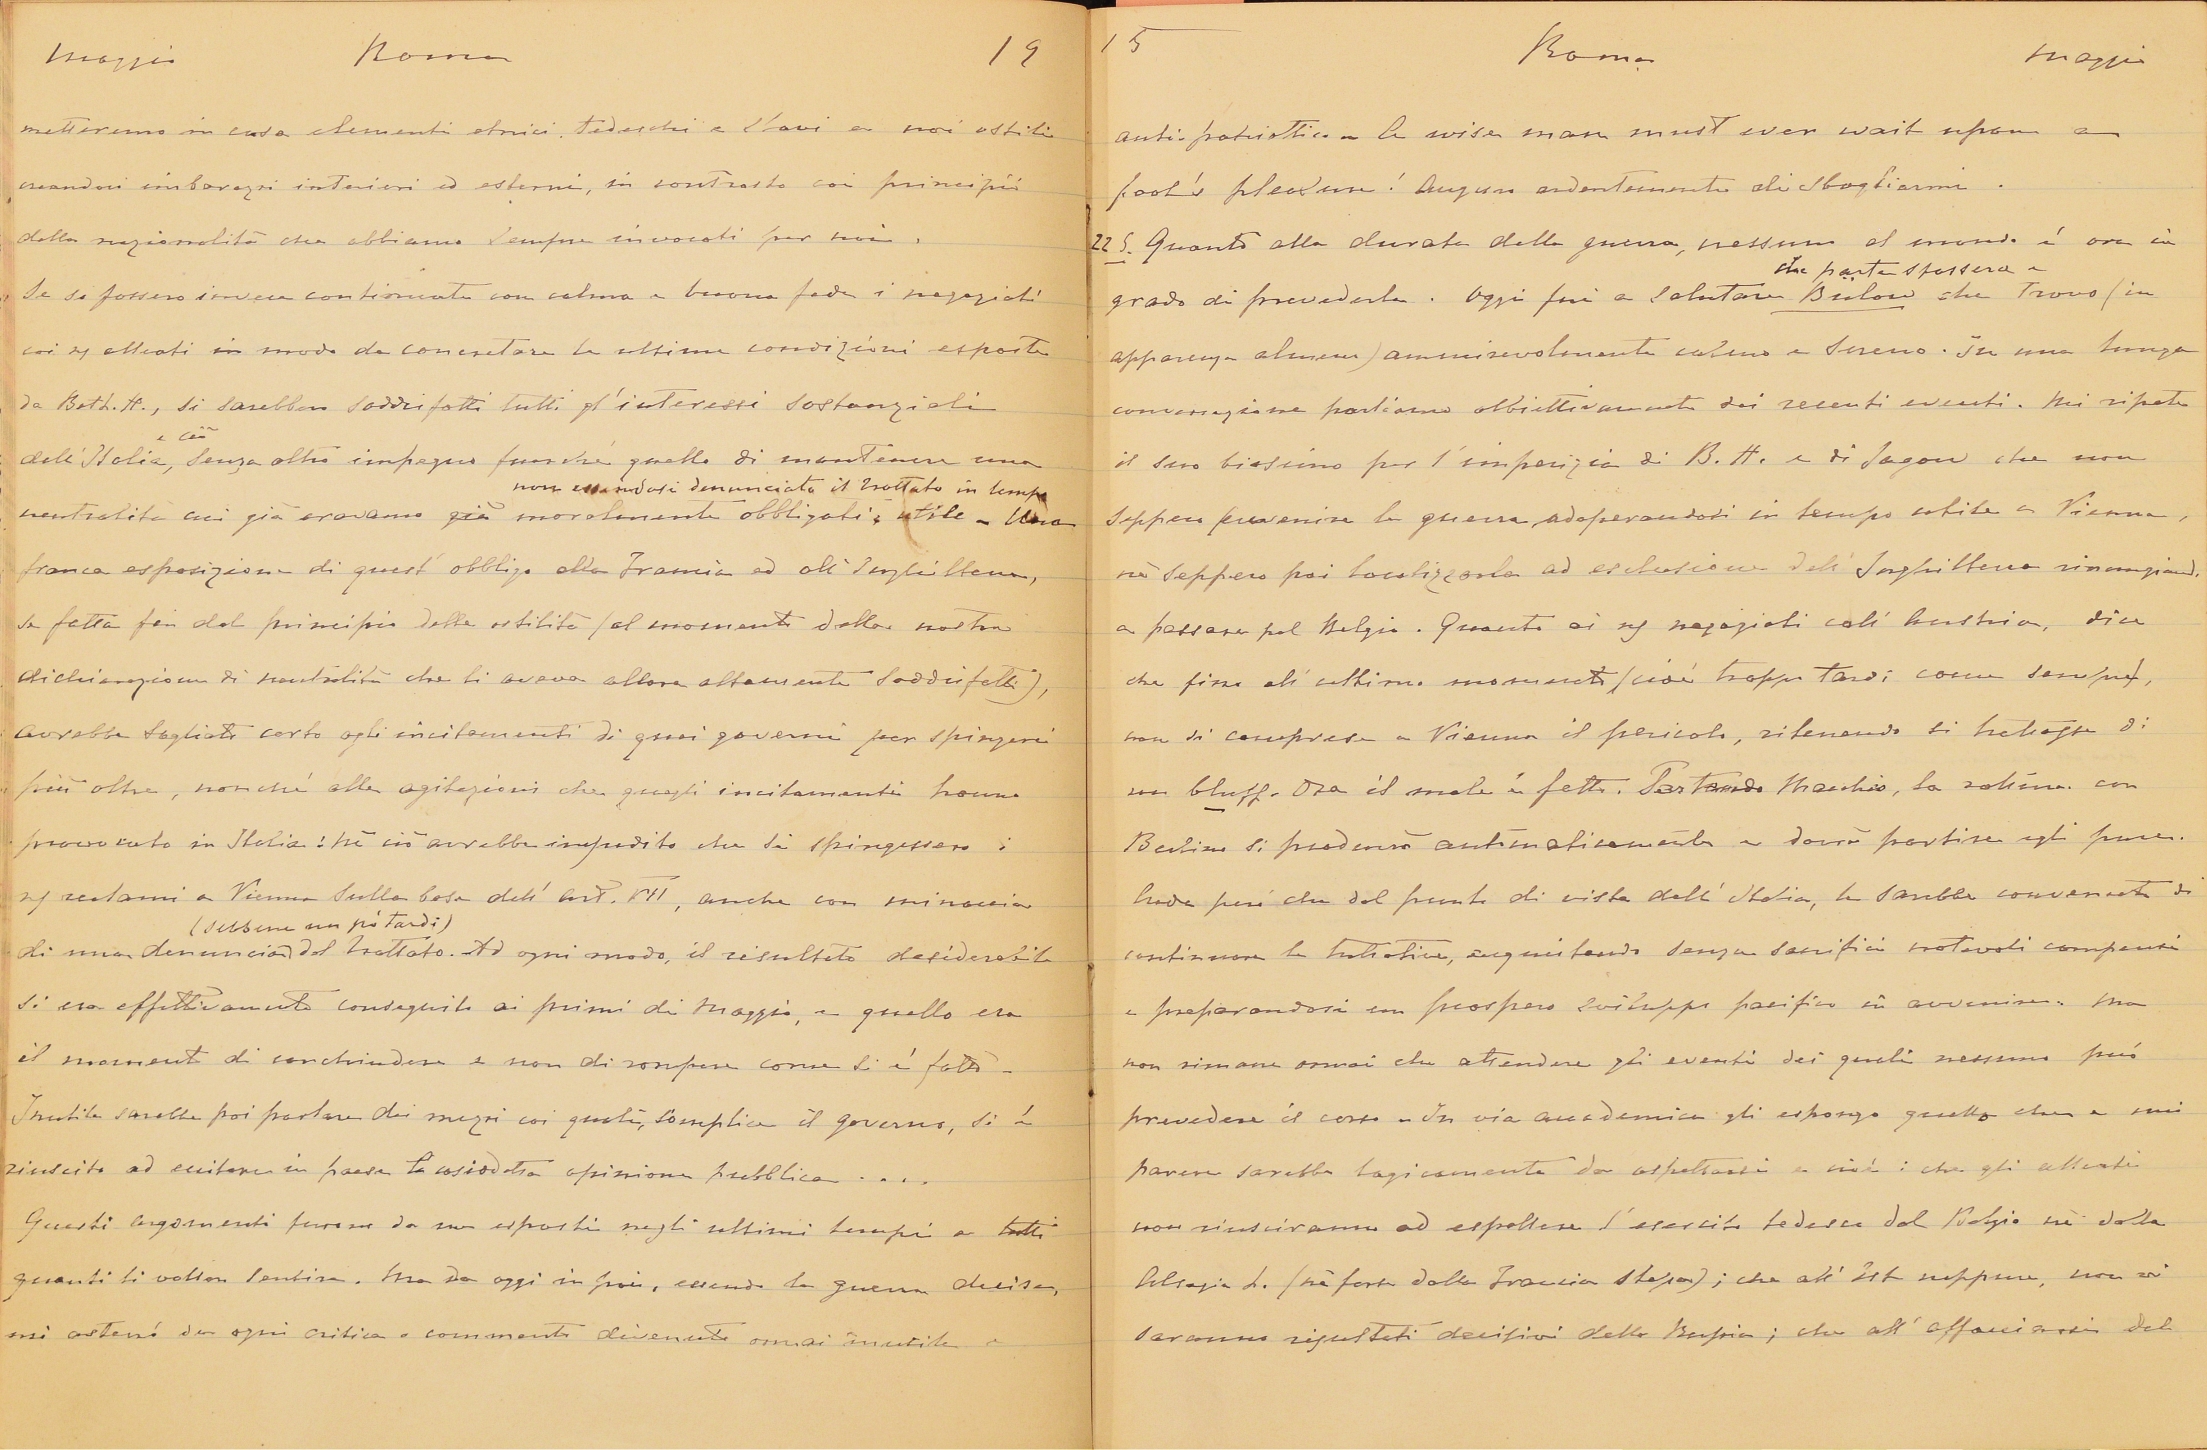 Maggio Roma 19
metteremo in casa elementi etnici tedeschi e slavi a noi ostili
creandoci imbarazzi interiori ed esterni, in contrasto coi principii
della nazionalità che abbiamo sempre invocati per noi.
Se si fossero invece continuati con calma e buona fede i negoziati
coi ns/ alleati in modo da concretare le ultime condizioni esposte
da Beth. H., si sarebbero soddisfatti tutti gl'interessi sostanziali
e ciò
dell'Italia, senza altro impegno fuorché quello di mantenere una
non essendosi denunciato il trattato in tempo
neutralità cui già eravamo già moralmente obbligati; utile - Una
franca esposizione di quest'obbligo alla Francia ed all'Inghilterra,
se fatta fin dal principio delle ostilità (al momento della nostra
dichiarazione di neutralità che li aveva allora altamente soddisfatti),
avrebbe tagliato corto agli incitamenti di quei governi per spingerci
più oltre, nonché alle agitazioni che quegli incitamenti hanno
provocato in Italia: nè ciò avrebbe impedito che si spingessero i
ns/ reclami a Vienna sulla base dell'art. VII, anche con minaccia
(sebbene un pò tardi)
di una denuncia del trattato. Ad ogni modo, il risultato desiderabile
si era effettivamente conseguito ai primi di Maggio, e quello era
il momento di conchiudere e non di rompere come si è fatto -
Inutile sarebbe poi parlare dei mezzi coi quali, complice il governo, si è
riuscito ad eccitare in paese la cosiddetta opinione pubblica . . . .
Questi argomenti furono da me esposti negli ultimi tempi a tutti
quanti li vollero sentire. Ma da oggi in poi, essendo la guerra decisa,
mi asterrò da ogni critica o commento divenuto omai inutile e
15 Roma Maggio
antipatriottico - A wise man must ever wait upon a
fool's pleasure! Auguro ardentemente di sbagliarmi.
22 S. Quanto alla durata della guerra, nessuno al mondo è ora in
che parte stassera e
grado di prevederla. Oggi fui a salutare Bülow che trovo (in
apparenza almeno) ammirevolmente calmo e sereno. In una lunga
conversazione parliamo obbiettivamente dei recenti eventi. Mi ripete
il suo biasimo per l'imperizia di B. H. e di Jagow che non
seppero prevenire la guerra adoperandosi in tempo utile a Vienna,
nè seppero poi localizzarla ad esclusione dell'Inghilterra rinunziand.
a passare pel Belgio. Quanto ai ns/ negoziati coll'Austria, dice
che fino all'ultimo momento (cioè troppo tardi come sempre),
non si comprese a Vienna il pericolo, ritenendo si trattasse di
un bluff. Ora il male è fatto. Partendo Macchio, la rottura con
Berlino si produrrà automaticamente e dovrà partire egli pure.
Crede però che dal punto di vista dell'Italia, le sarebbe convenuto di
continuare le trattative, acquistando senza sacrifici notevoli compensi
e preparandosi un prospero sviluppo pacifico in avvenire. Ma
non rimane ormai che attendere gli eventi dei quali nessuno può
prevedere il corso - In via accademica gli espongo quello che a mio
parere sarebbe logicamente da aspettarsi e cioè: che gli alleati
non riusciranno ad espellere l'esercito tedesco dal Belgio nè dalla
Alsazia L. (nè forse dalla Francia stessa); che all'Est neppure, non vi
saranno risultati decisivi della Russia; che all'affacciarsi del